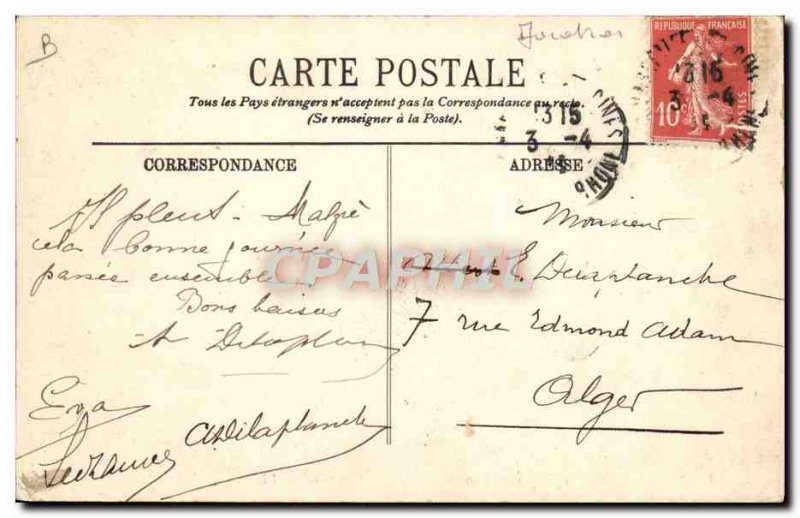 B
CARTE POSTALE
Tous les Pays étrangers n'acceptent pas la Correspondance au recto.
(Se renseigner à la Poste).
REPUBLIQUE FRANÇAISE
10c
POSTES
13 15
3 -4
RHÔNE
13 15
3 -4
CORRESPONDANCE
ADRESSE
Il pleut - Malgré
cela bonne journée
passée ensemble.
Bons baisers
A Delaplan
Eva
ADelaplanche
Monsieur
E. Delaplanche
7 rue Edmond Adam
Alger
CPAPHIL